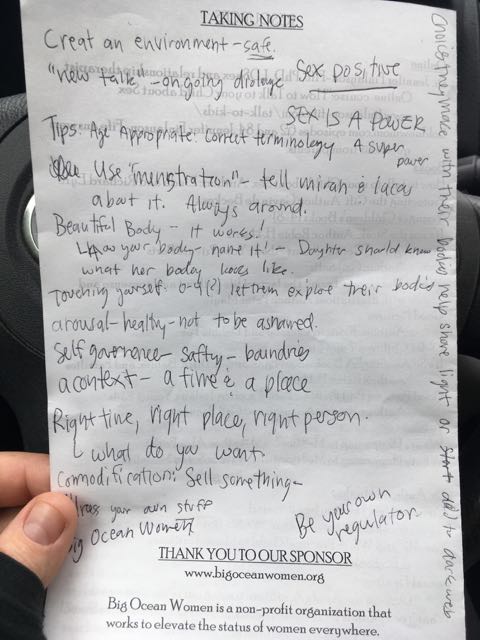 TAKING NOTES
Creat an environment - safe.
"new talk" - ongoing dialoge
Sex positive
SEX IS A POWER
A super
power
Tips: Age Appropriate. Correct terminology
Use "minstration" - tell mirah &
about it. Always around.
Beautiful Body - it works!
Know your body - name it! - Daughter should know
what her body looks like.
Touching yourself: 0-9(?) let them explore their bodies
arousal - healthy - not to be ashamed.
Self governence - safty - boundries
a context - a time & a place
Right time, right place, right person.
what do you want.
Commodification: Sell something -
your own stuff
Big Ocean Women
Be your own
regulator.
choices they make with their bodies help share light or start to dark web
THANK YOU TO OUR SPONSOR
www.bigoceanwomen.org
Big Ocean Women is a non-profit organization that
works to elevate the status of women everywhere.